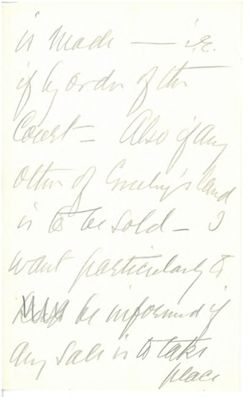 is made — i.e.
if by order of the
Court — Also if any
other of Greeley's land
is to be sold — I
want particularly to
be informed if
any sale is to take
place